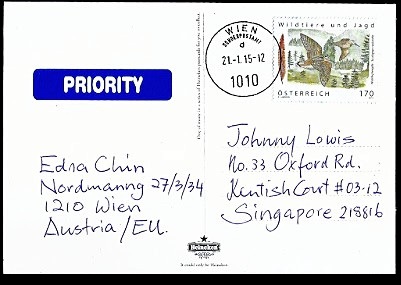 WIEN
SONDERPOSTAMT
d
21.-1.15-12
1010
Wildtiere und Jagd
ÖSTERREICH 170
PRIORITY
Edna Chin
Nordmanng 27/3/34
1210 Wien
Austria/EU.
Johnny Lowis
No.33 Oxford Rd.
Kentish Court #03-12
Singapore 218816
Heineken